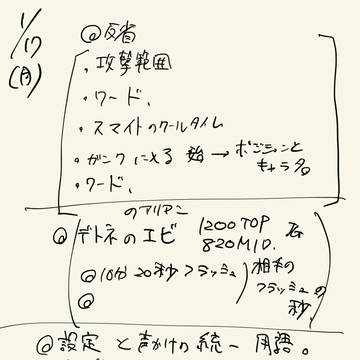 1/17
(月)
◎反省
・攻撃範囲
・ワード、
・スマイトのクールタイム
・ガンクに来る 始 → ポジションと
キャラ名
・ワード、
のアリアニ
◎デトネのエビ 1200TOP
820MID.
◎10分20秒フラッシュ
相手の
フラッシュの
秒
◎
◎設定と声かけの統一 用語。